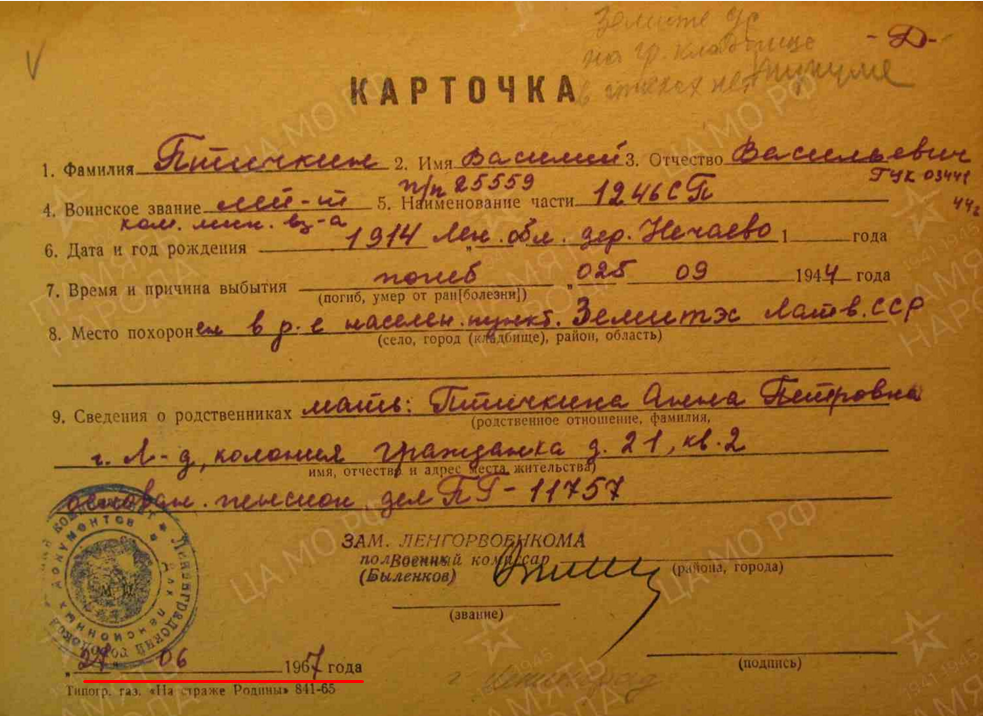 Земите ЭС
на гр. кладбище
в списках нет
-Д-
КАРТОЧКА
1. Фамилия Птичкин 2. Имя Василий 3. Отчество Васильевич
п/п 25559 ГУК 03441
4. Воинское звание мл. л-т 5. Наименование части 1246СП 44г
ком. мин. вз-а
6. Дата и год рождения 1914 Лен. обл. дер. Нечаево 1 года
7. Время и причина выбытия погиб "025 09 1944 года
(погиб, умер от ран[болезни])
8. Место похоронен в р-е населен. пункт. Земитэс Латв. ССР
(село, город (кладбище), район, область)
9. Сведения о родственниках мать: Птичкина Анна Петровна
(родственное отношение, фамилия,
г. Л-д, колония Гражданка д. 21, кв. 2
имя, отчество и адрес места жительства)
основан. пенсион дел ПГ-11757
ЗАМ. ЛЕНГОРВОЕНКОМА
полковник
Военный комиссар (района, города)
(Быленков)
(звание)
(подпись)
"27. 06 1967 года
Типогр. газ. «На страже Родины» 841-65
г. Ленинград
ЦА МО РФ
ПАМЯТЬ НАРОДА
1941 1945